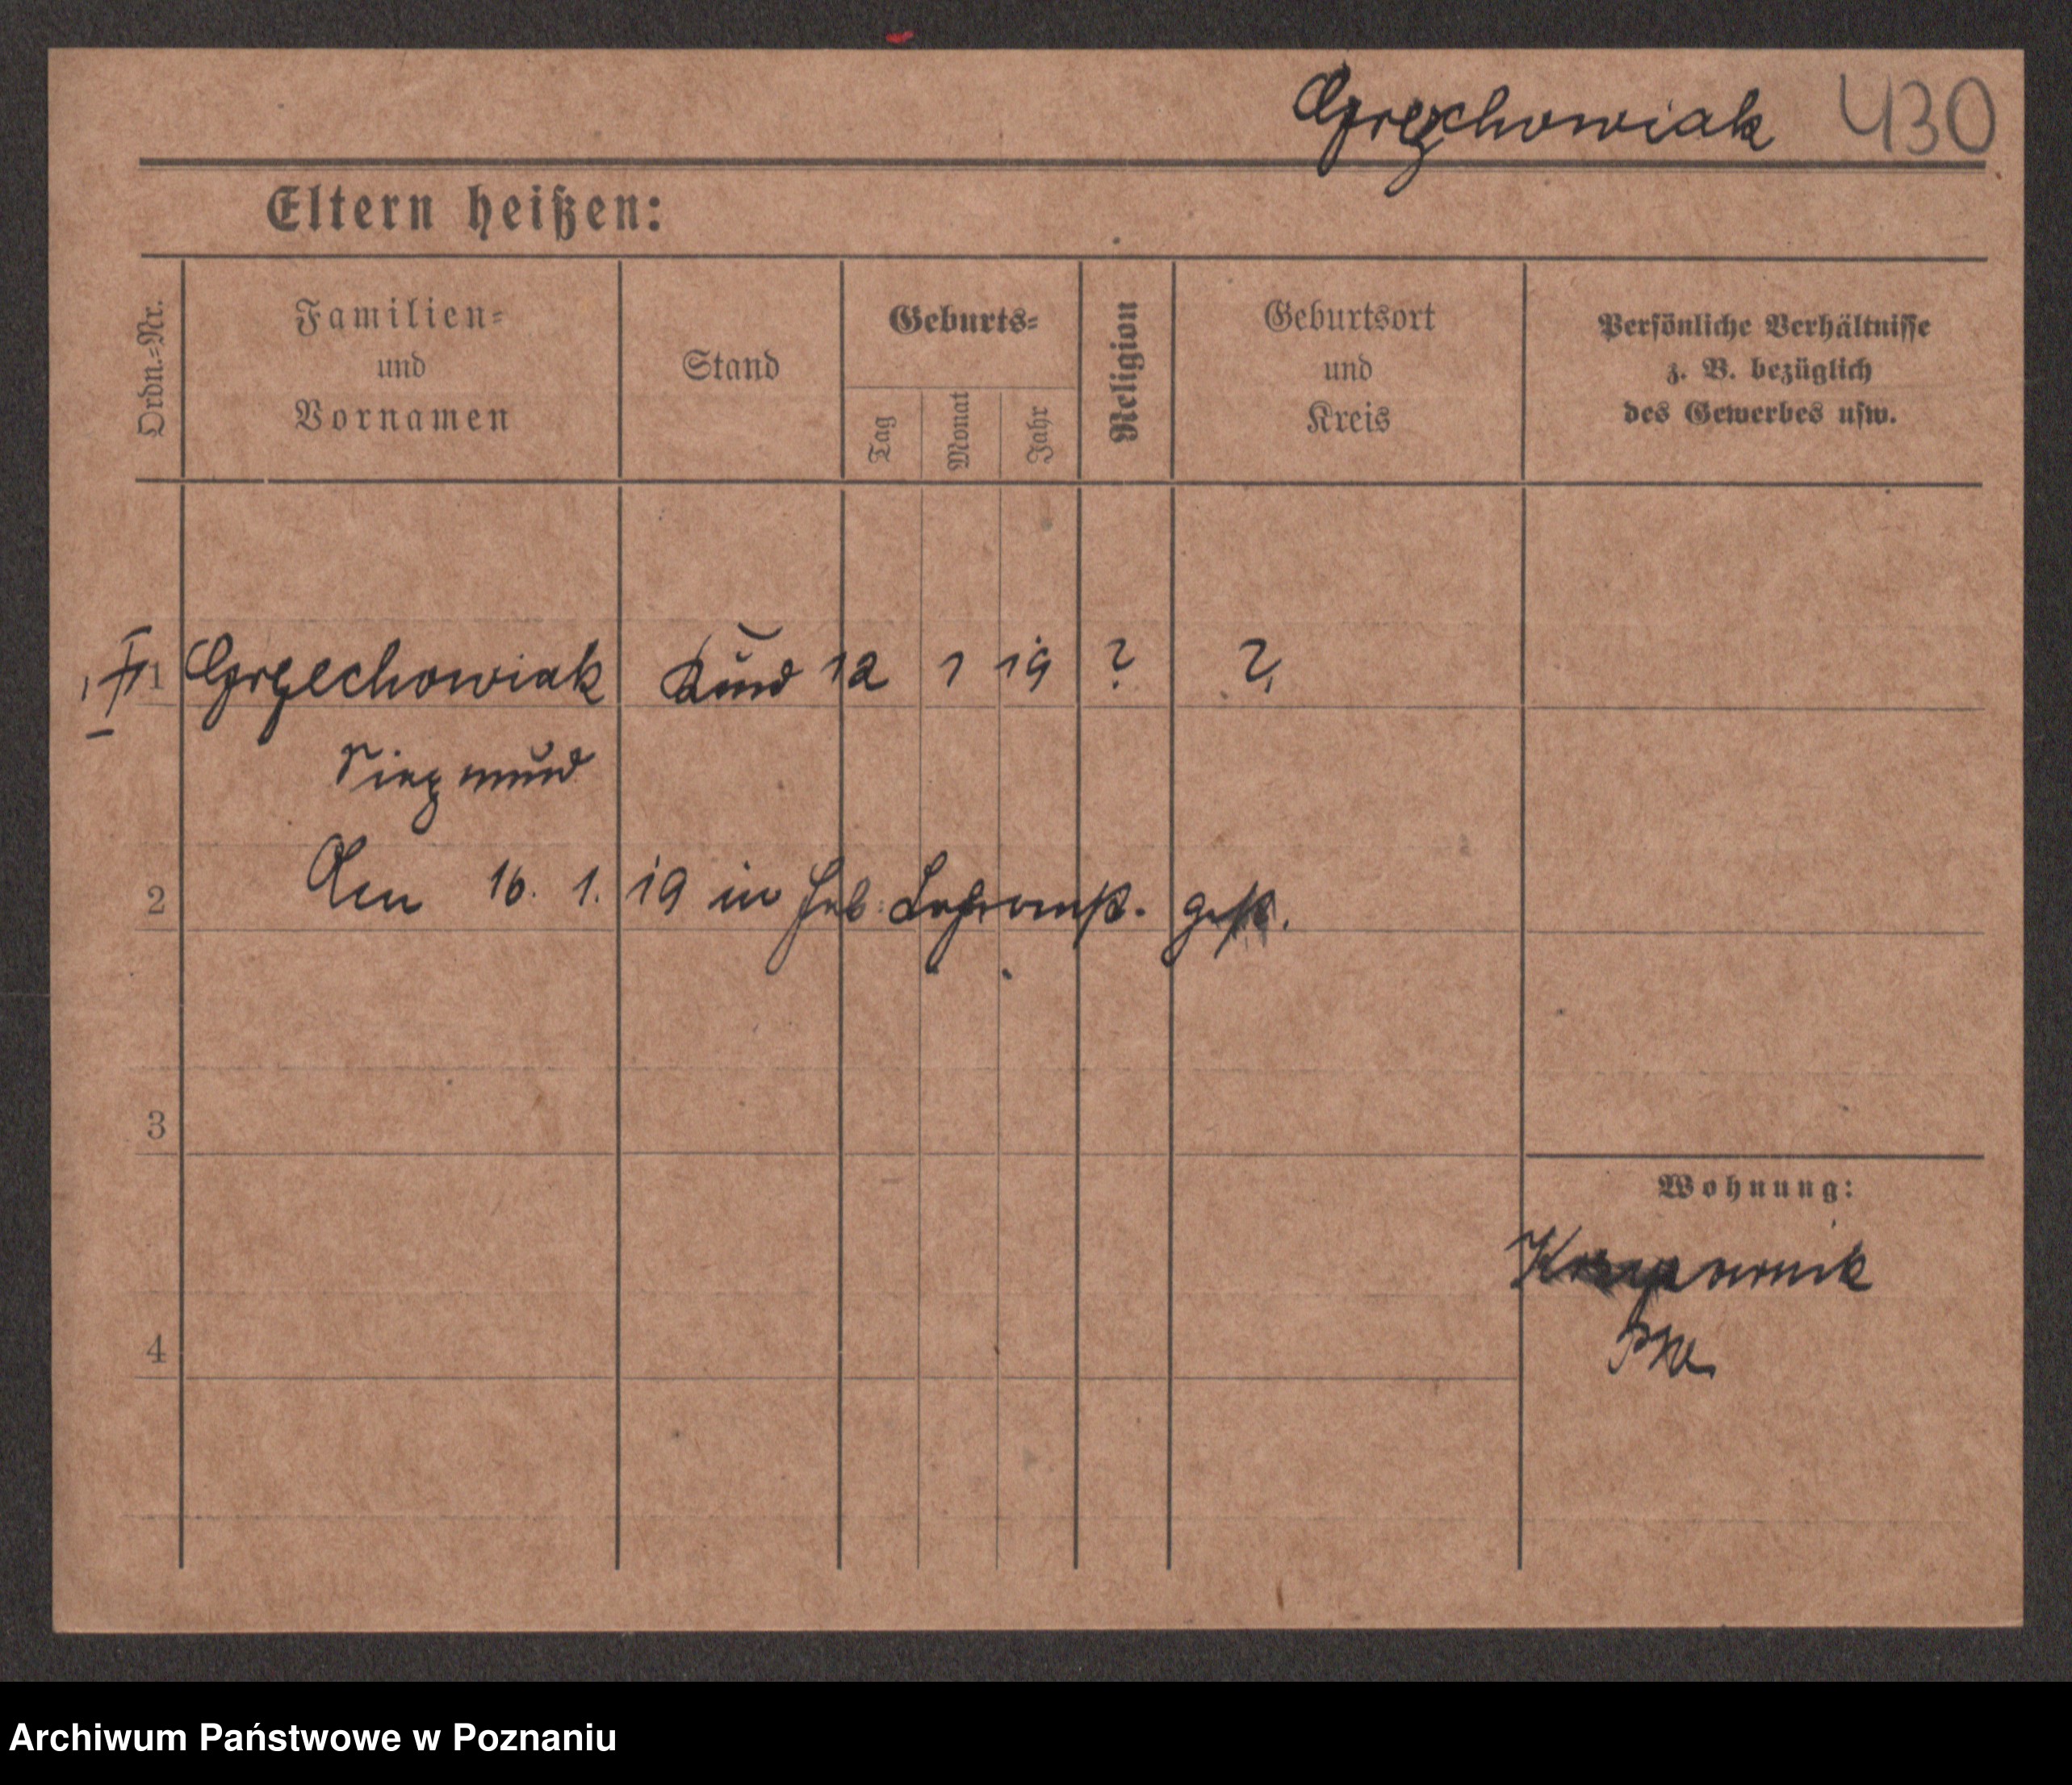 Grzechowiak 430
Eltern heißen:
Ordn.-Nr.
Familien-
und
Vornamen
Stand
Geburts-
Tag
Monat
Jahr
Religion
Geburtsort
und
Kreis
Persönliche Verhältnisse
z. B. bezüglich
des Gewerbes usw.
1 Grzechowiak Kind 12 1 19 ? ?
Siegmund
2 Den 16. 1. 19 in Heb. Lehranst. gest.
3
Wohnung:
4
Archiwum Państwowe w Poznaniu